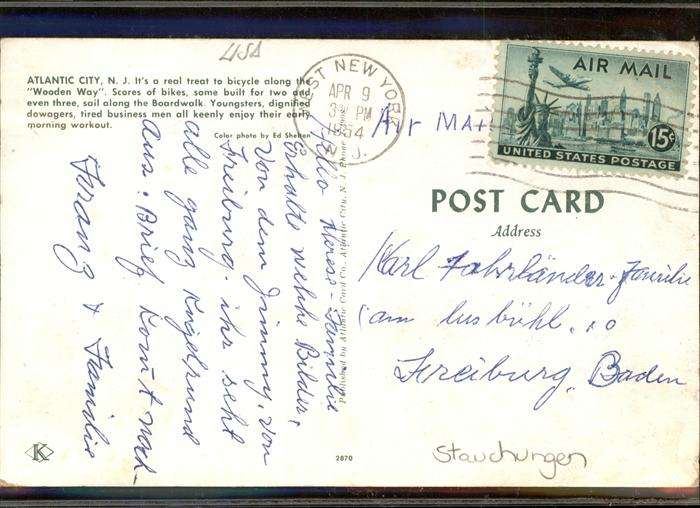 USA
ATLANTIC CITY, N. J. It's a real treat to bicycle along the
"Wooden Way". Scores of bikes, some built for two and
even three, sail along the Boardwalk. Youngsters, dignified
dowagers, tired business men all keenly enjoy their early
morning workout.
Color photo by Ed Shelton
WEST NEW YORK
APR 9
3 PM
1954
N. J.
AIR MAIL
15¢
UNITED STATES POSTAGE
Air Mail
POST CARD
Address
Karl Fahrländer-Familie
am lusbühl. 10
Freiburg, Baden
Hallo Familie
Erhalte welche Bilder,
von dem Jimmy, von
Freiburg. ihr seht
alle ganz Kugelrund
aus. Brief komt noch
Franz & Familie
Published by Atlantic Card Co., Atlantic City, N. J. Phone
K
2870
Stauchungen